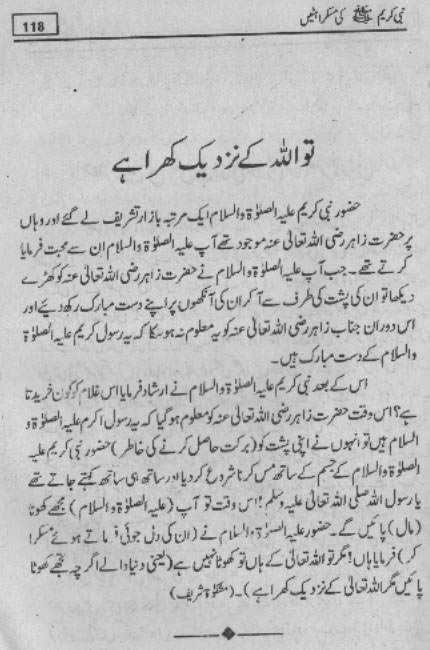 نبی کریم ﷺ کی مسکراہٹیں
118
تو اللہ کے نزدیک کھرا ہے
حضور نبی کریم علیہ الصلوٰۃ والسلام ایک مرتبہ بازار تشریف لے گئے اور وہاں
پر حضرت زاہر رضی اللہ تعالیٰ عنہ موجود تھے آپ علیہ الصلوٰۃ والسلام ان سے محبت فرمایا
کرتے تھے۔ جب آپ علیہ الصلوٰۃ والسلام نے حضرت زاہر رضی اللہ تعالیٰ عنہ کو کھڑے
دیکھا تو ان کی پشت کی طرف سے آ کر ان کی آنکھوں پر اپنے دست مبارک رکھ دیئے اور
اس دوران جناب زاہر رضی اللہ تعالیٰ عنہ کو یہ معلوم نہ ہو سکا کہ یہ رسول کریم علیہ الصلوٰۃ
والسلام کے دست مبارک ہیں۔
اس کے بعد نبی کریم علیہ الصلوٰۃ والسلام نے ارشاد فرمایا اس غلام کو کون خریدتا
ہے؟ اس وقت حضرت زاہر رضی اللہ تعالیٰ عنہ کو معلوم ہو گیا کہ یہ رسول اکرم علیہ الصلوٰۃ و
السلام ہیں تو انہوں نے اپنی پشت کو (برکت حاصل کرنے کی خاطر) حضور نبی کریم علیہ
الصلوٰۃ والسلام کے جسم کے ساتھ مس کرنا شروع کر دیا اور ساتھ ہی ساتھ کہتے جاتے تھے
یا رسول اللہ صلی اللہ تعالیٰ علیہ وسلم! اس وقت تو آپ (علیہ الصلوٰۃ والسلام) مجھے کھوٹا
(مال) پائیں گے۔ حضور علیہ الصلوٰۃ والسلام نے (ان کی دل جوئی فرماتے ہوئے مسکرا
کر) فرمایا ہاں! مگر تو اللہ تعالیٰ کے ہاں تو کھوٹا نہیں ہے (یعنی دنیا والے اگرچہ تجھے کھوٹا
پائیں مگر اللہ تعالیٰ کے نزدیک کھرا ہے)۔ (مشکوٰۃ شریف)